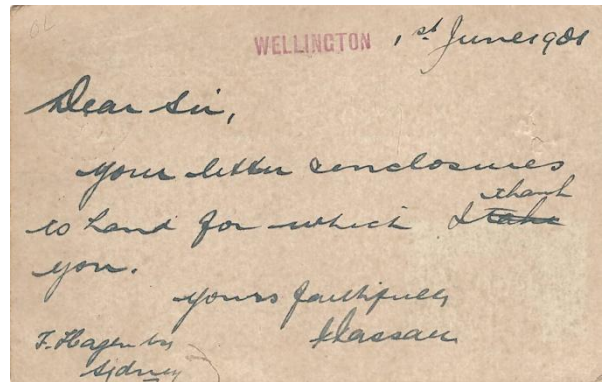 WELLINGTON 1st June 1901
Dear Sir,
your letter & enclosures
to hand for which I take thank
you.
yours faithfully
F. Hagen
Sidney